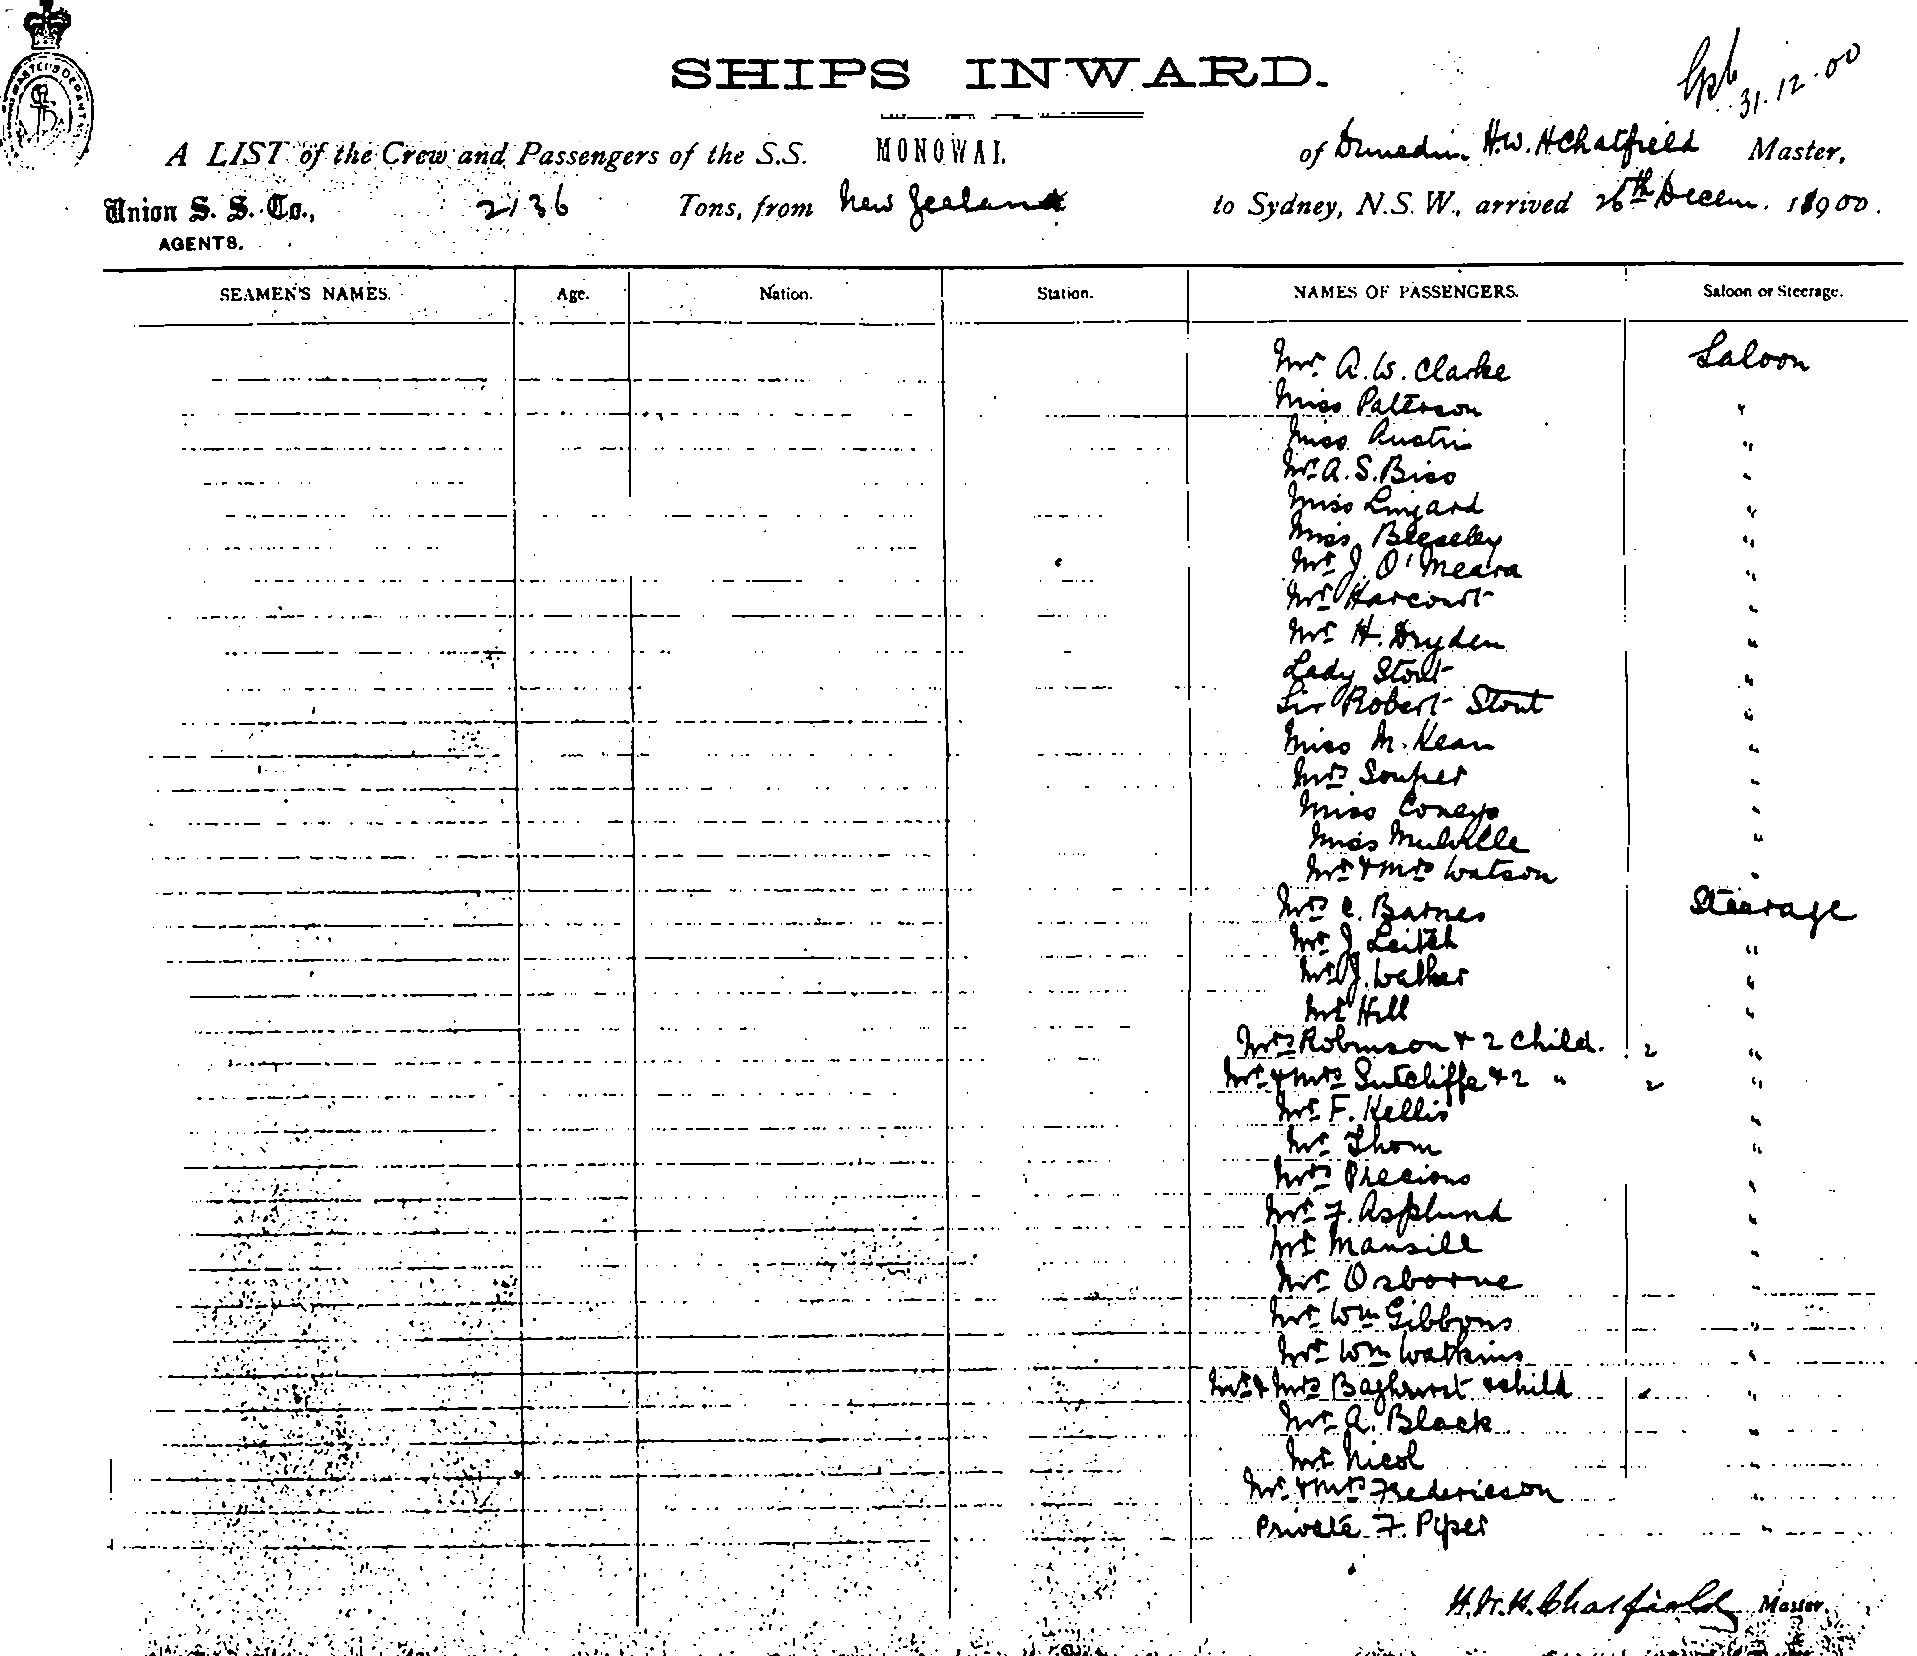 SHIPS INWARD.
31.12.00
A LIST of the Crew and Passengers of the S.S. MONOWAI. of Dunedin, H.W.H Chatfield Master,
Union S. S. Co., 2136 Tons, from New Zealand to Sydney, N.S.W., arrived 26th Decem. 1900.
AGENTS.
SEAMEN'S NAMES. Age. Nation. Station. NAMES OF PASSENGERS. Saloon or Steerage.
Mr. A. W. Clarke Saloon
Miss Patterson "
Miss Austin "
Mr. A. S. Biss "
Miss Lingard "
Miss Beeseley "
Mr J. O'Meara "
Mr Harcourt "
Mr H. Dryden "
Lady Stout "
Sir Robert Stout "
Miss M. Kean "
Mrs Souper "
Miss Coneys "
Miss Mulville "
Mr & Mrs Watson "
Mrs C. Barnes Steerage
Mr J Leitch "
Mr J. Walker "
Mr Hill "
Mrs Robinson & 2 Child. 2 "
Mr & Mrs Sutcliffe & 2 " 2 "
Mr F. Kellis "
Mr Thom "
Mrs Precious "
Mr F. Asplund "
Mr Mansill "
Mr Osborne "
Mr Wm Gibbons "
Mr Wm Watkins "
Mr & Mrs Baghurst & child "
Mr A. Black "
Mr Nicol "
Mr & Mrs Fredericson "
Private F. Piper "
H.W.H. Chatfield Master.